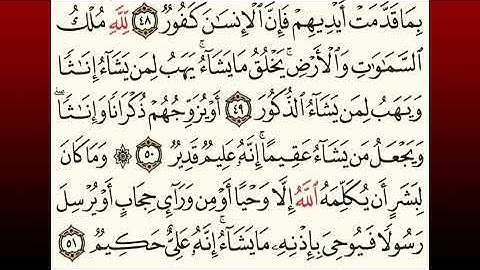 بِمَا قَدَّمَتْ أَيْدِيهِمْ فَإِنَّ ٱلْإِنسَـٰنَ كَفُورٌ ٤٨ لِّلَّهِ مُلْكُ
ٱلسَّمَـٰوَٰتِ وَٱلْأَرْضِ ۚ يَخْلُقُ مَا يَشَآءُ ۚ يَهَبُ لِمَن يَشَآءُ إِنَـٰثًا
وَيَهَبُ لِمَن يَشَآءُ ٱلذُّكُورَ ٤٩ أَوْ يُزَوِّجُهُمْ ذُكْرَانًا وَإِنَـٰثًا ۖ
وَيَجْعَلُ مَن يَشَآءُ عَقِيمًا ۚ إِنَّهُۥ عَلِيمٌ قَدِيرٌ ٥٠ ۞ وَمَا كَانَ
لِبَشَرٍ أَن يُكَلِّمَهُ ٱللَّهُ إِلَّا وَحْيًا أَوْ مِن وَرَآئِ حِجَابٍ أَوْ يُرْسِلَ
رَسُولًا فَيُوحِىَ بِإِذْنِهِۦ مَا يَشَآءُ ۚ إِنَّهُۥ عَلِىٌّ حَكِيمٌ ٥١